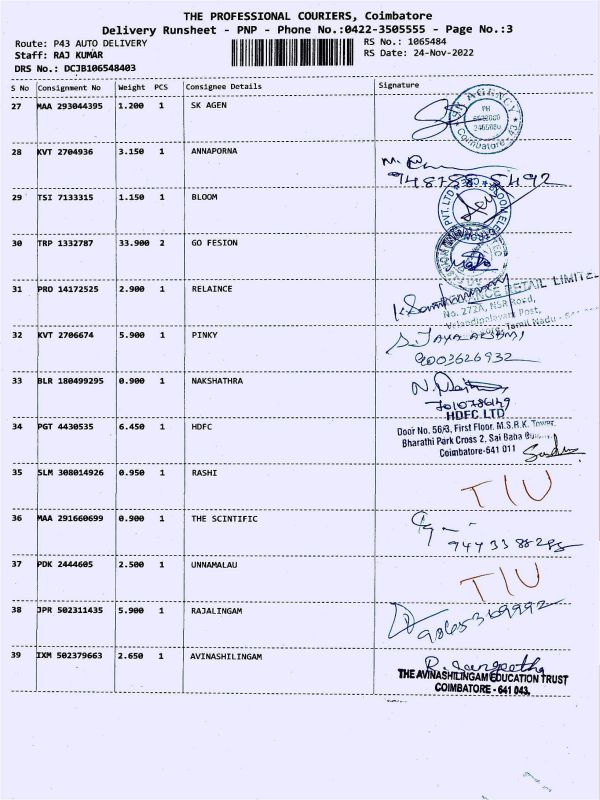 THE PROFESSIONAL COURIERS, Coimbatore
Delivery Runsheet - PNP - Phone No.:0422-3505555 - Page No.:3
Route: P43 AUTO DELIVERY RS No.: 1065484
Staff: RAJ KUMAR RS Date: 24-Nov-2022
DRS No.: DCJB106548403
S No Consignment No Weight PCS Consignee Details Signature
27 MAA 293044395 1.200 1 SK AGEN
SK AGENCY
PH
Coimbatore-43
28 KVT 2704936 3.150 1 ANNAPORNA
M.
29 TSI 7133315 1.150 1 BLOOM
PVT.LTD
30 TRP 1332787 33.900 2 GO FESION
31 PRO 14172525 2.900 1 RELAINCE
RETAIL LIMITE
No. 272A, NSR Road,
Post,
Tamil Nadu
32 KVT 2706674 5.900 1 PINKY
9003626932
33 BLR 180499295 0.900 1 NAKSHATHRA
HDFC LTD
34 PGT 4430535 6.450 1 HDFC
Door No. 56/3, First Floor. M.S.R.K. Tower,
Bharathi Park Cross 2, Sai Baba
Coimbatore-641 011
35 SLM 308014926 0.950 1 RASHI
T/U
36 MAA 291660699 0.900 1 THE SCINTIFIC
37 PDK 2444605 2.500 1 UNNAMALAU
T/U
38 JPR 502311435 5.900 1 RAJALINGAM
39 IXM 502379663 2.650 1 AVINASHILINGAM
R. Sangeetha
THE AVINASHILINGAM EDUCATION TRUST
COIMBATORE - 641 043.